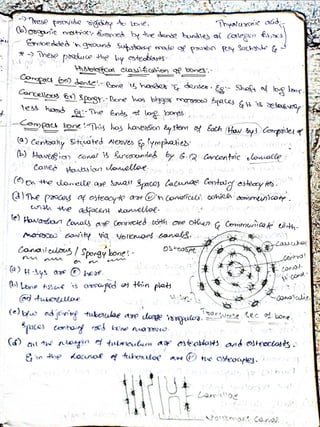 → These provide rigidity to bone.
Thyaluronic acid.
(b) organic matrix:- formed by the dense bundles of collagen fibres
Embedded in ground substance made of protein poly saccharide &
* → These produce the by osteoblasts.
Histological classification of bones:-
Compact (or) dense:- Bone is harder & denser. Eg:- Shaft of long bone
Cancellous (or) Spongy:- Bone has bigger marrow spaces & it is relatively
less hard. Eg:- The ends of long bones.
Compact bone:- This has haversion system of each (Hav sys) composites of
(a) Centrally situated nerves & lymphatics.
(b) Haversion canal is surrounded by 6-12 concentric lamellae
called Haversion lamellae.
(c) On the lamellae are small spaces lacunae containg osteocytes.
(d) The process of osteocyte are (P) in canaliculi which communicate
with the adjacent lamellae.
(e) Haversian canals are connected with one other & communicate with
marrow cavity via Volkmans canals.
Cancellous / Spongy bone:-
(a) H-sys are (P) here.
(b) bone tissue is arranged as thin plats
tubercullae
(c) b/w adjoining tuberculae are large irregular
spaces containg red bone marrow.
(d) On the margin of tuberculum are osteoblasts and osteoclasts.
& in the lacunae of tuberculae are (P) the osteocytes.
osteocyte
canaliculi
central
canal
canaliculi
H-sys
Transverse sec of bone.
Lamillae
Volkmans canal